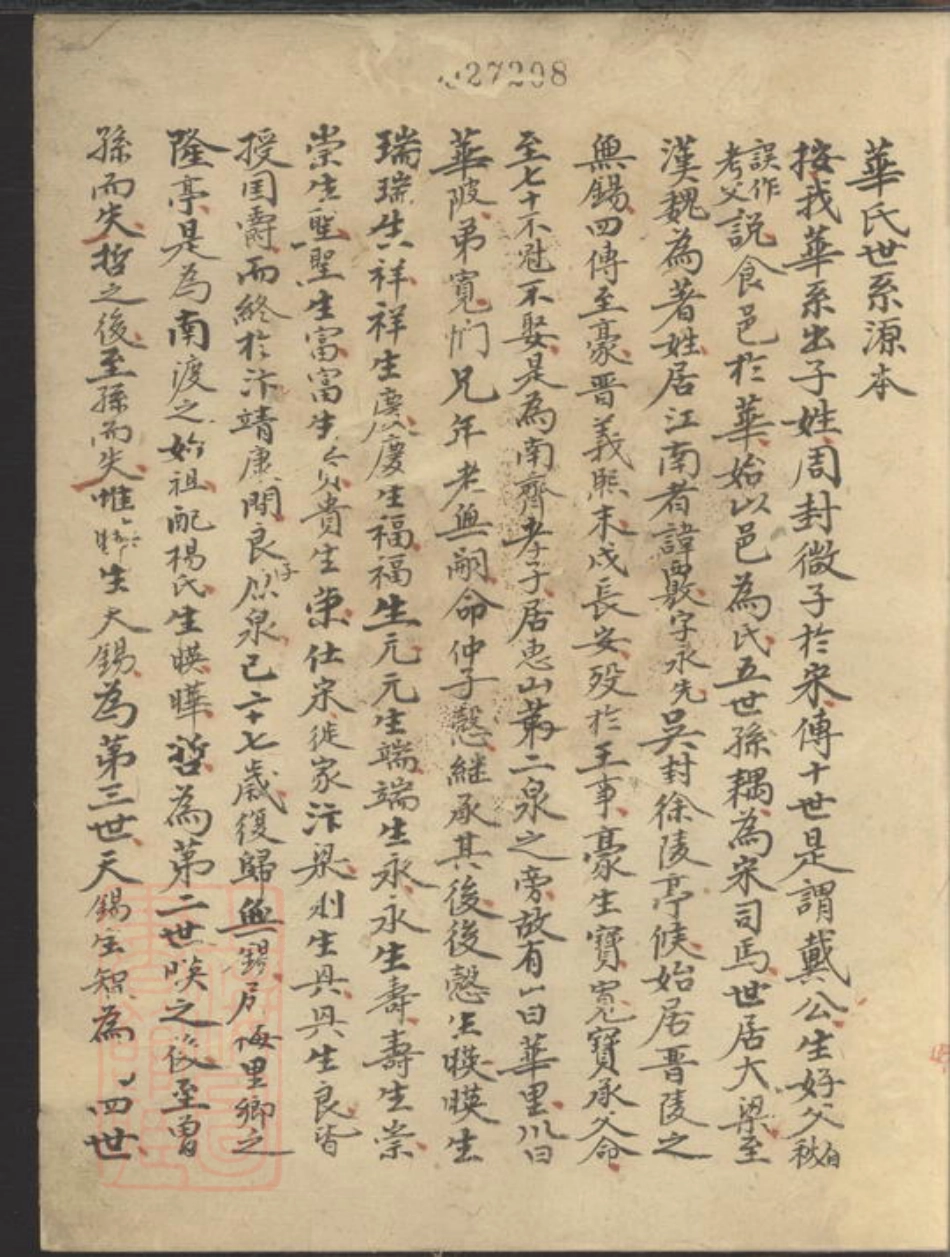 27298
華氏世系源本
按我華系出子姓周封微子於宋傳十世是謂戴公生好父秘自
誤作考父說食邑於華始以邑為氏五世孫耦為宋司馬世居大梁至
漢魏為著姓居江南者諱覈字永先吳封徐陵亭候始居晋陵之
無錫四傳至豪晋義熈末戍長安歿於王事豪生寶寬寶承父命
至七十不冠不娶是為南齊孝子居惠山第二泉之旁故有山曰華里以曰
華陂弟寬憫兄年老無嗣命仲子慤継承其後後慤生暎暎生
瑞瑞生祥祥生慶慶生福福生元元生端端生永永生壽壽生崇
崇生聖聖生富富生貴貴生荣仕宋徙家汴梁生具具生良皆
授囯爵而終於汴靖康間良原泉已二十七歲復歸無錫居梅里鄉之
隆亭是為南渡之始祖配楊氏生暎曄哲為第二世暎之後至曾
孫而失哲之後至孫而失惟生天錫為第三世天錫生智為四世